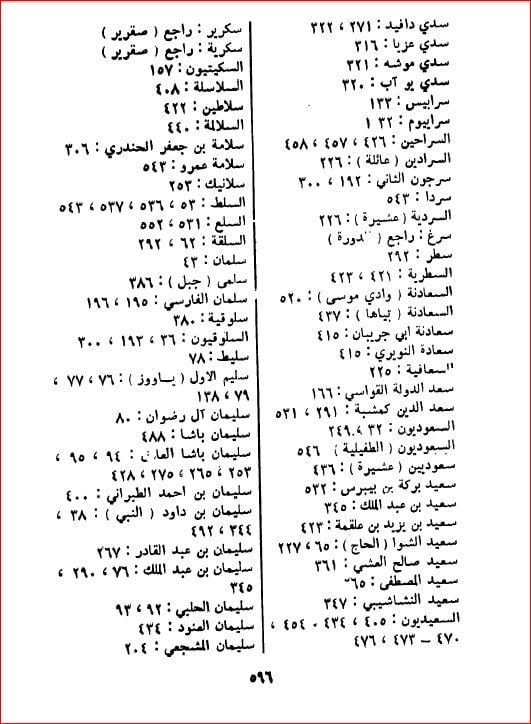 سدي دافيد : ٢٧١ ، ٣٢٢
سدي عزيا : ٣١٦
سدي موشه : ٣٢١
سدي يو آب : ٣٢٠
سرابيس : ١٣٣
سرابيوم : ١٣٢
السراحين : ٤٢٦ ، ٤٥٧ ، ٤٥٨
السرادين ( عائلة ) : ٢٢٦
سرجون الثاني : ١٩٢ ، ٣٠٠
سردا : ٥٤٣
السردية ( عشيرة ) : ٢٢٦
سرغ : راجع ( المدورة )
سطر : ٢٩٢
السطرية : ٤٢١ ، ٤٢٣
السعادنة ( وادي موسى ) : ٥٢٠
السعادنة ( تياها ) : ٤٣٧
سعادنة ابي جريبان : ٤١٥
سعادة النويري : ٤١٥
السعافية : ٢٢٥
سعد الدولة القواسي : ١٦٦
سعد الدين كمشبة : ٢٩١ ، ٥٣١
السعوديون : ٣٢ ، ٢٤٩
السعوديون ( الطفيلية ) ٥٤٦
سعوديين ( عشيرة ) : ٤٣٦
سعيد بركة بن بيبرس : ٥٣٢
سعيد بن عبد الملك : ٣٤٥
سعيد بن يزيد بن علقمة : ٤٢٣
سعيد الشوا ( الحاج ) : ٦٥ ، ٢٢٧
سعيد صالح العشي : ٣٦١
سعيد المصطفى : ٦٥
سعيد النشاشيبي : ٣٤٧
السعيديون : ٤٠٥ ، ٤٣٤ ، ٤٥٤ ،
٤٧٠ – ٤٧٣ ، ٤٧٦
سكرير : راجع ( صقرير )
سكرية : راجع ( صقرير )
السكيتيون : ١٥٧
السلاسلة : ٤٠٨
سلاطين : ٤٢٢
السلالة : ٤٤٠
سلامة بن جعفر الحندري : ٣٠٦
سلامة عمرو : ٥٤٣
سلانيك : ٢٥٣
السلط : ٥٣ ، ٥٣٦ ، ٥٣٧ ، ٥٤٣
السلع : ٥٣١ ، ٥٥٢
السلقة : ٦٢ ، ٢٩٢
سلمان : ٤٣
سلمى ( جبل ) : ٣٨٦
سلمان الفارسي : ١٩٥ ، ١٩٦
سلوقية : ٣٨٠
السلوقيون : ٣٦ ، ١٩٣ ، ٣٠٠
سليط : ٧٨
سليم الاول ( يساووز ) : ٧٦ ، ٧٧ ،
٧٩ ، ١٣٨
سليمان آل رضوان : ٨٠
سليمان باشا : ٤٨٨
سليمان باشا العادل : ٩٤ ، ٩٥ ،
٢٥٣ ، ٢٦٥ ، ٢٧٥ ، ٤٢٨
سليمان بن احمد الطبراني : ٤٠٠
سليمان بن داود ( النبي ) : ٣٨ ،
٣٤٤ ، ٤٩٢
سليمان بن عبد القادر : ٢٦٧
سليمان بن عبد الملك : ٧٦ ، ٢٩٠ ،
٣٤٥
سليمان الحلبي : ٩٢ ، ٩٣
سليمان العنود : ٤٣٤
سليمان المشجعي : ٢٠٤
٥٩٦